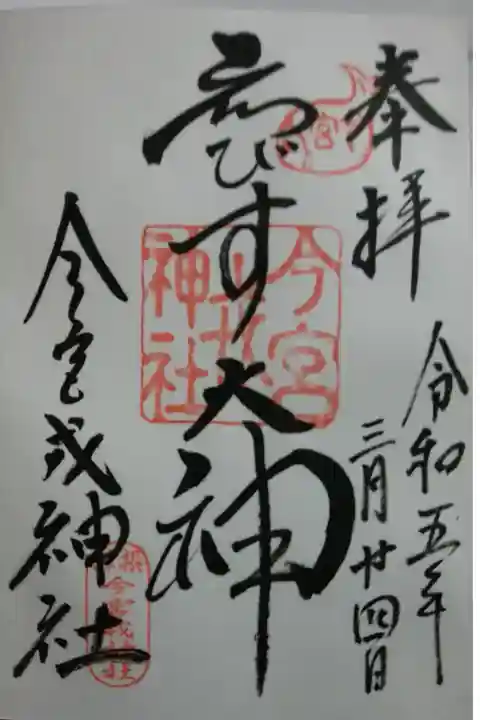 奉拝
令和五年
三月廿四日
ゑびす大神
今宮戎神社
今宮戎神社